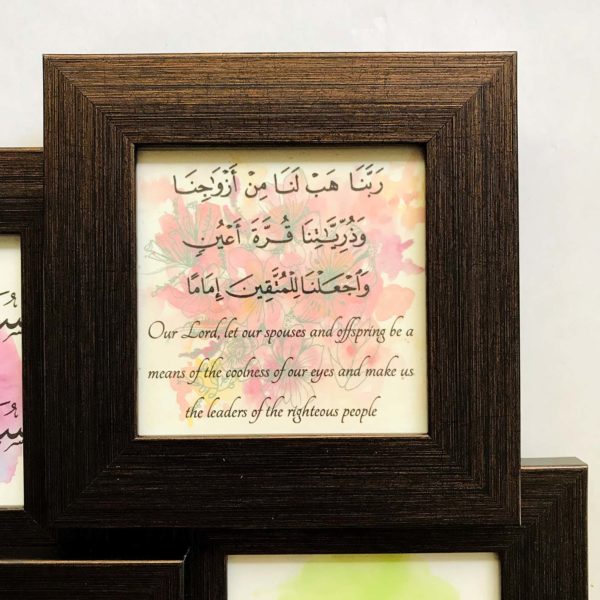 رَبَّنَا هَبْ لَنَا مِنْ أَزْوَٰجِنَا
وَذُرِّيَّـٰتِنَا قُرَّةَ أَعْيُنٍ
وَٱجْعَلْنَا لِلْمُتَّقِينَ إِمَامًا
Our Lord, let our spouses and offspring be a
means of the coolness of our eyes and make us
the leaders of the righteous people